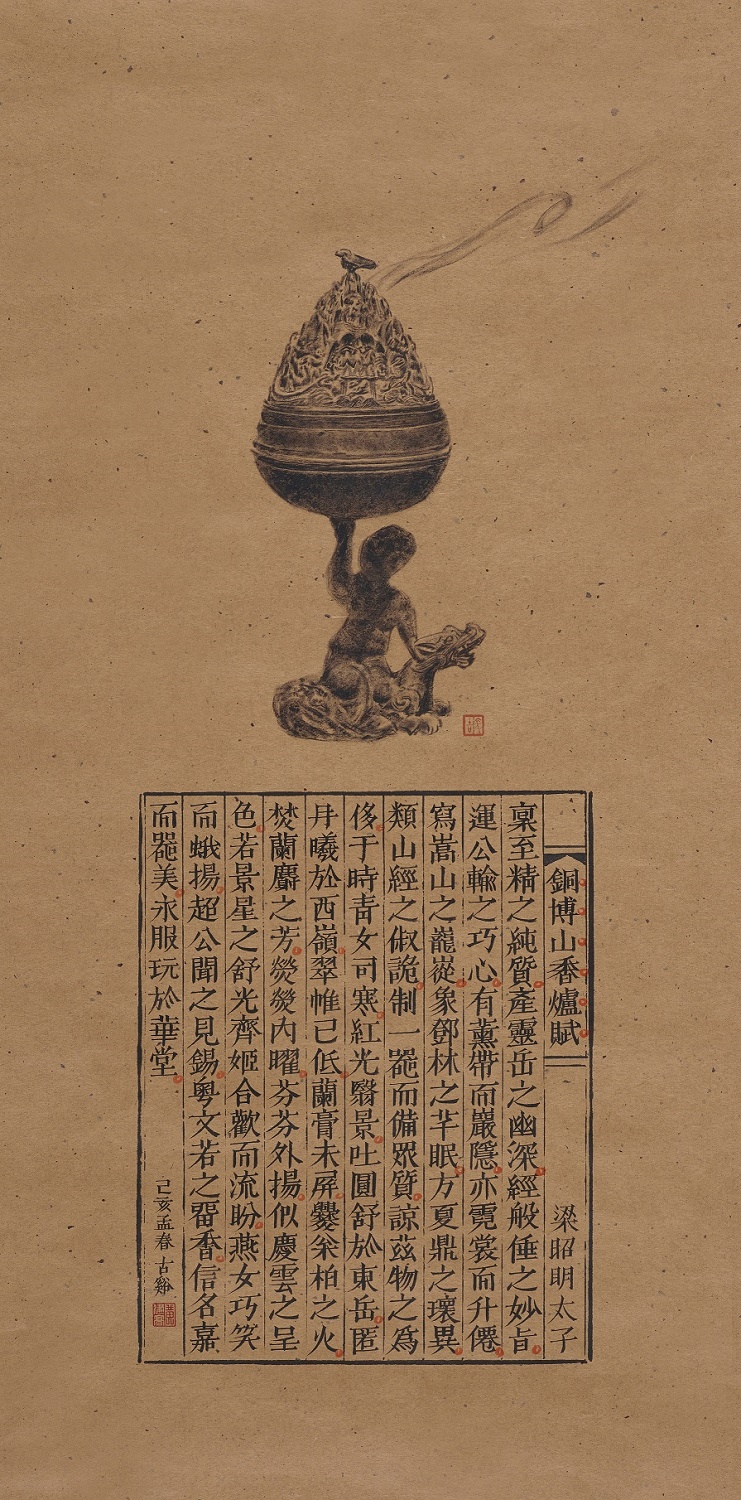 銅博山香爐賦 梁昭明太子
稟至精之純質產靈岳之幽深經般倕之妙旨
運公輸之巧心有薰帶而巖隱亦霓裳而升僊
寫嵩山之巃嵸象鄧林之芊眠方夏鼎之瓌異
類山經之俶詭制一器而備眾質諒茲物之為
侈于時青女司寒紅光翳景吐圓舒於東岳匿
丹曦於西嶺翠帷已低蘭膏未屏爨松柏之火
焚蘭麝之芳熒熒內曜芬芬外揚似慶雲之呈
色若景星之舒光齊姬合歡而流盼燕女巧笑
而蛾揚超公聞之見錫粵文若之留香信名嘉
而器美永服玩於華堂
己亥孟春古谿